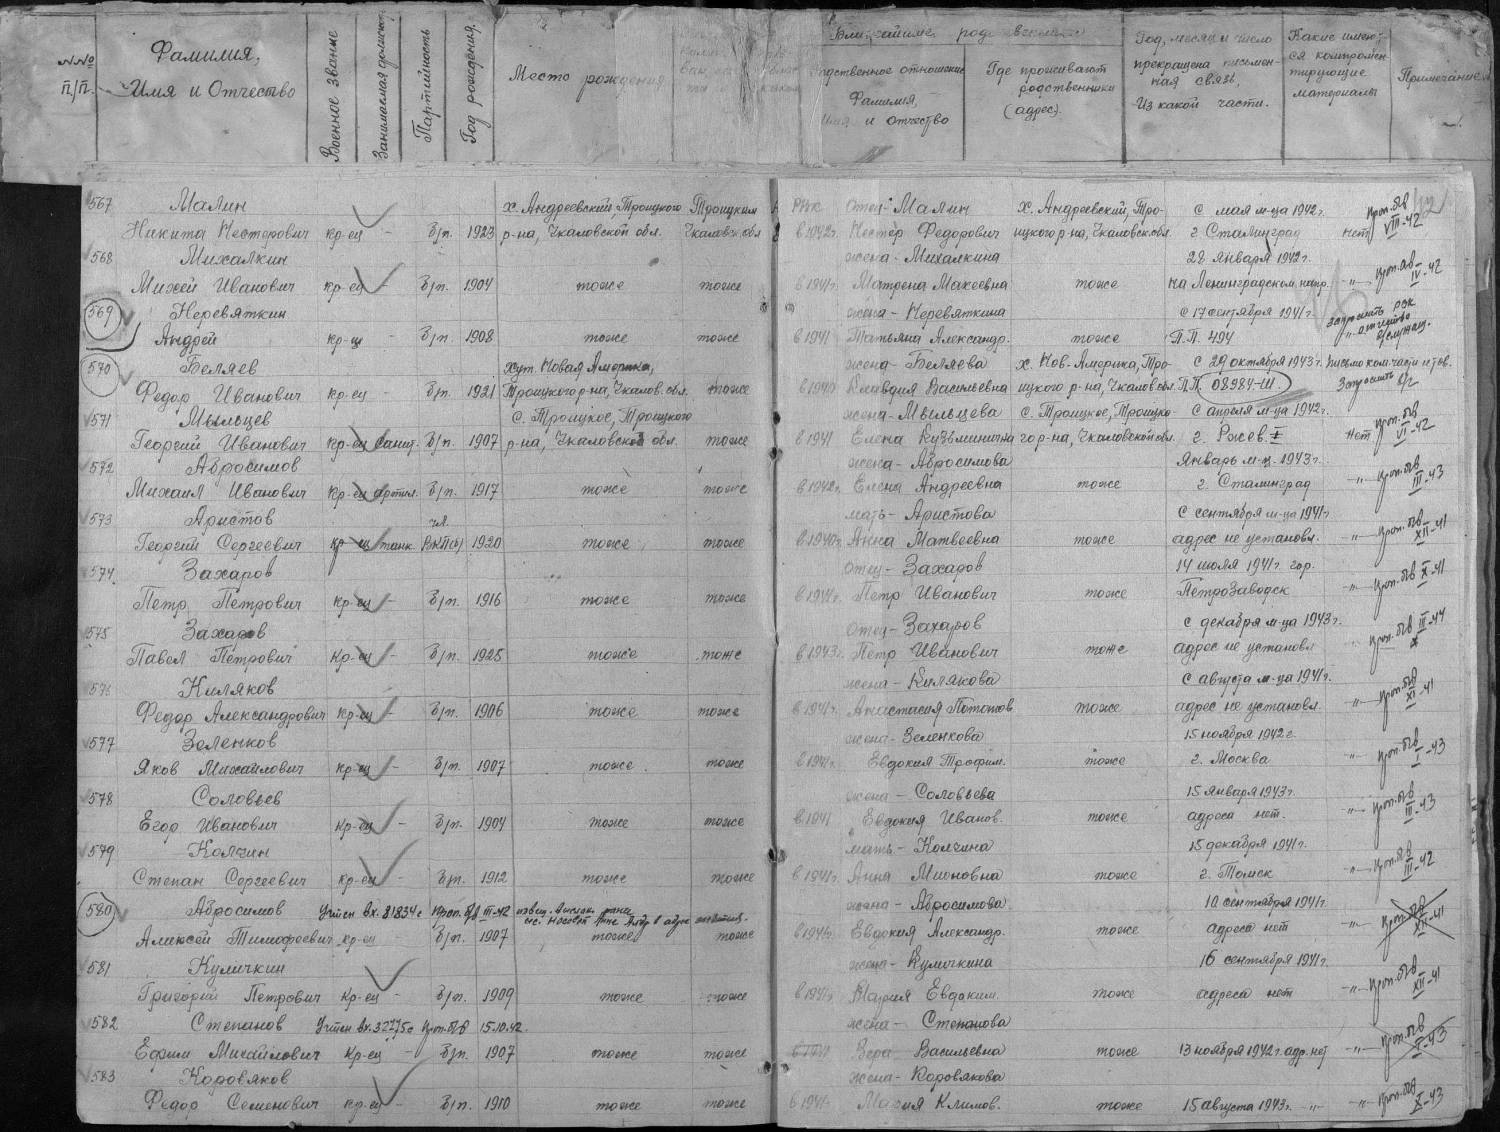 NNo п/п.
Фамилия, Имя и Отчество
Военное звание
Занимаемая должн.
Партийность
Год рождения.
Место рождения
Ближайшие родственники
Родственное отношение Фамилия, Имя и отчество
Где проживают родственники (адрес).
Год, месяц и число прекращена письменная связь, Из какой части.
Какие имеются компроментирующие материалы
Примечание
567 Малин х. Андреевский, Троицкого Троицким РВК отец - Малин х. Андреевский, Тро- с мая м-ца 1942г.
Никита Нестерович кр-ец - б/п. 1923 р-на, Чкаловской обл. Чкаловск. обл в 1942г. Нестер Федорович ицкого р-на, Чкаловск. обл. г. Сталинград нет проп. б/в VIII-42
568 Михалкин жена - Михалкина 28 января 1942г.
Михей Иванович кр-ец - б/п. 1904 тоже тоже в 1941г. Матрена Макеевна тоже на Ленинградском напр. -"- проп. б/в IV-42
569 Неревяткин жена - Неревяткина с 17 сентября 1941г.
Андрей кр-ец - б/п. 1908 тоже тоже в 1941 Татьяна Александр. тоже П.П. 494
570 Беляев хут. Новая Америка, жена - Беляева х. Нов-Америка, Тро- с 29 октября 1943г.
Федор Иванович кр-ец - б/п. 1921 Троицкого р-на, Чкалов. обл. тоже в 1940 Клавдия Васильевна ицкого р-на, Чкалов обл. П.П. 08984-Ш.
571 Мыльцев с. Троицкое, Троицкого жена - Мыльцева с. Троицкое, Троицко- с апреля м-ца 1942г.
Георгий Иванович кр-ец санит. б/п. 1907 р-на, Чкаловской обл. тоже в 1941 Елена Кузьминична го р-на, Чкаловской обл. г. Ржев. нет проп. б/в VI-42
572 Абросимов жена - Абросимова Январь м-ц. 1943г.
Михаил Иванович кр-ец артил. б/п. 1917 тоже тоже в 1942г. Елена Андреевна тоже г. Сталинград -"- проп. б/в III-43
573 Аристов чл. мать - Аристова с сентября м-ца 1941г
Георгий Сергеевич кр-ец танк. ВКП(б) 1920 тоже тоже в 1940г. Анна Матвеевна тоже адрес не установл. -"- проп. б/в XII-41
574. Захаров отец - Захаров 14 июля 1941г. гор.
Петр Петрович кр-ец - б/п. 1916 тоже тоже в 1941г. Петр Иванович тоже Петрозаводск -"- проп. б/в X-41
575 Захаров отец - Захаров с декабря м-ца 1943г.
Павел Петрович кр-ец - б/п. 1925 тоже тоже в 1943г. Петр Иванович тоже адрес не установл -"- проп. б/в III-44
576 Киляков жена - Килякова с августа м-ца 1941г.
Федор Александрович кр-ец - б/п. 1906 тоже тоже в 1941г. Анастасия Потапов тоже адрес не установл. -"- проп. б/в XI-41
577 Зеленков жена - Зеленкова 15 ноября 1942г.
Яков Михайлович кр-ец - б/п. 1907 тоже тоже в 1941г. Евдокия Трофим. тоже г. Москва -"- проп. б/в I-43
578 Соловьев жена - Соловьева 15 января 1943г.
Егор Иванович кр-ец - б/п. 1904 тоже тоже в 1941 Евдокия Иванов. тоже адреса нет. -"- проп. б/в III-43
579 Колчин мать - Колчина 15 декабря 1941г.
Степан Сергеевич кр-ец - б/п. 1912 тоже тоже в 1941г. Анна Мироновна тоже г. Томск -"- проп. б/в III-42
580 Абросимов Учтен вх. 81834с проп. б/в III-42 жена - Абросимова 10 сентября 1941г.
Алексей Тимофеевич кр-ец - б/п. 1907 тоже тоже в 1941г. Евдокия Александр. тоже адреса нет -"- проп. б/в XII-41
581 Куличкин жена - Куличкина 16 сентября 1941г.
Григорий Петрович кр-ец - б/п. 1909 тоже тоже в 1941г Мария Евдоким. тоже адреса нет -"- проп. б/в XII-41
582 Степанов Учтен вх. 32775с проп. б/в 15.10.42. жена - Степанова
Ефим Михайлович кр-ец - б/п. 1907 тоже тоже в 1941 Вера Васильевна тоже 13 ноября 1942г. адр. нет -"- проп. б/в
583 Коровяков жена - Коровякова
Федор Семенович кр-ец - б/п. 1910 тоже тоже в 1941г. Мария Климов. тоже 15 августа 1943г. -"- -"- проп. б/в X-43